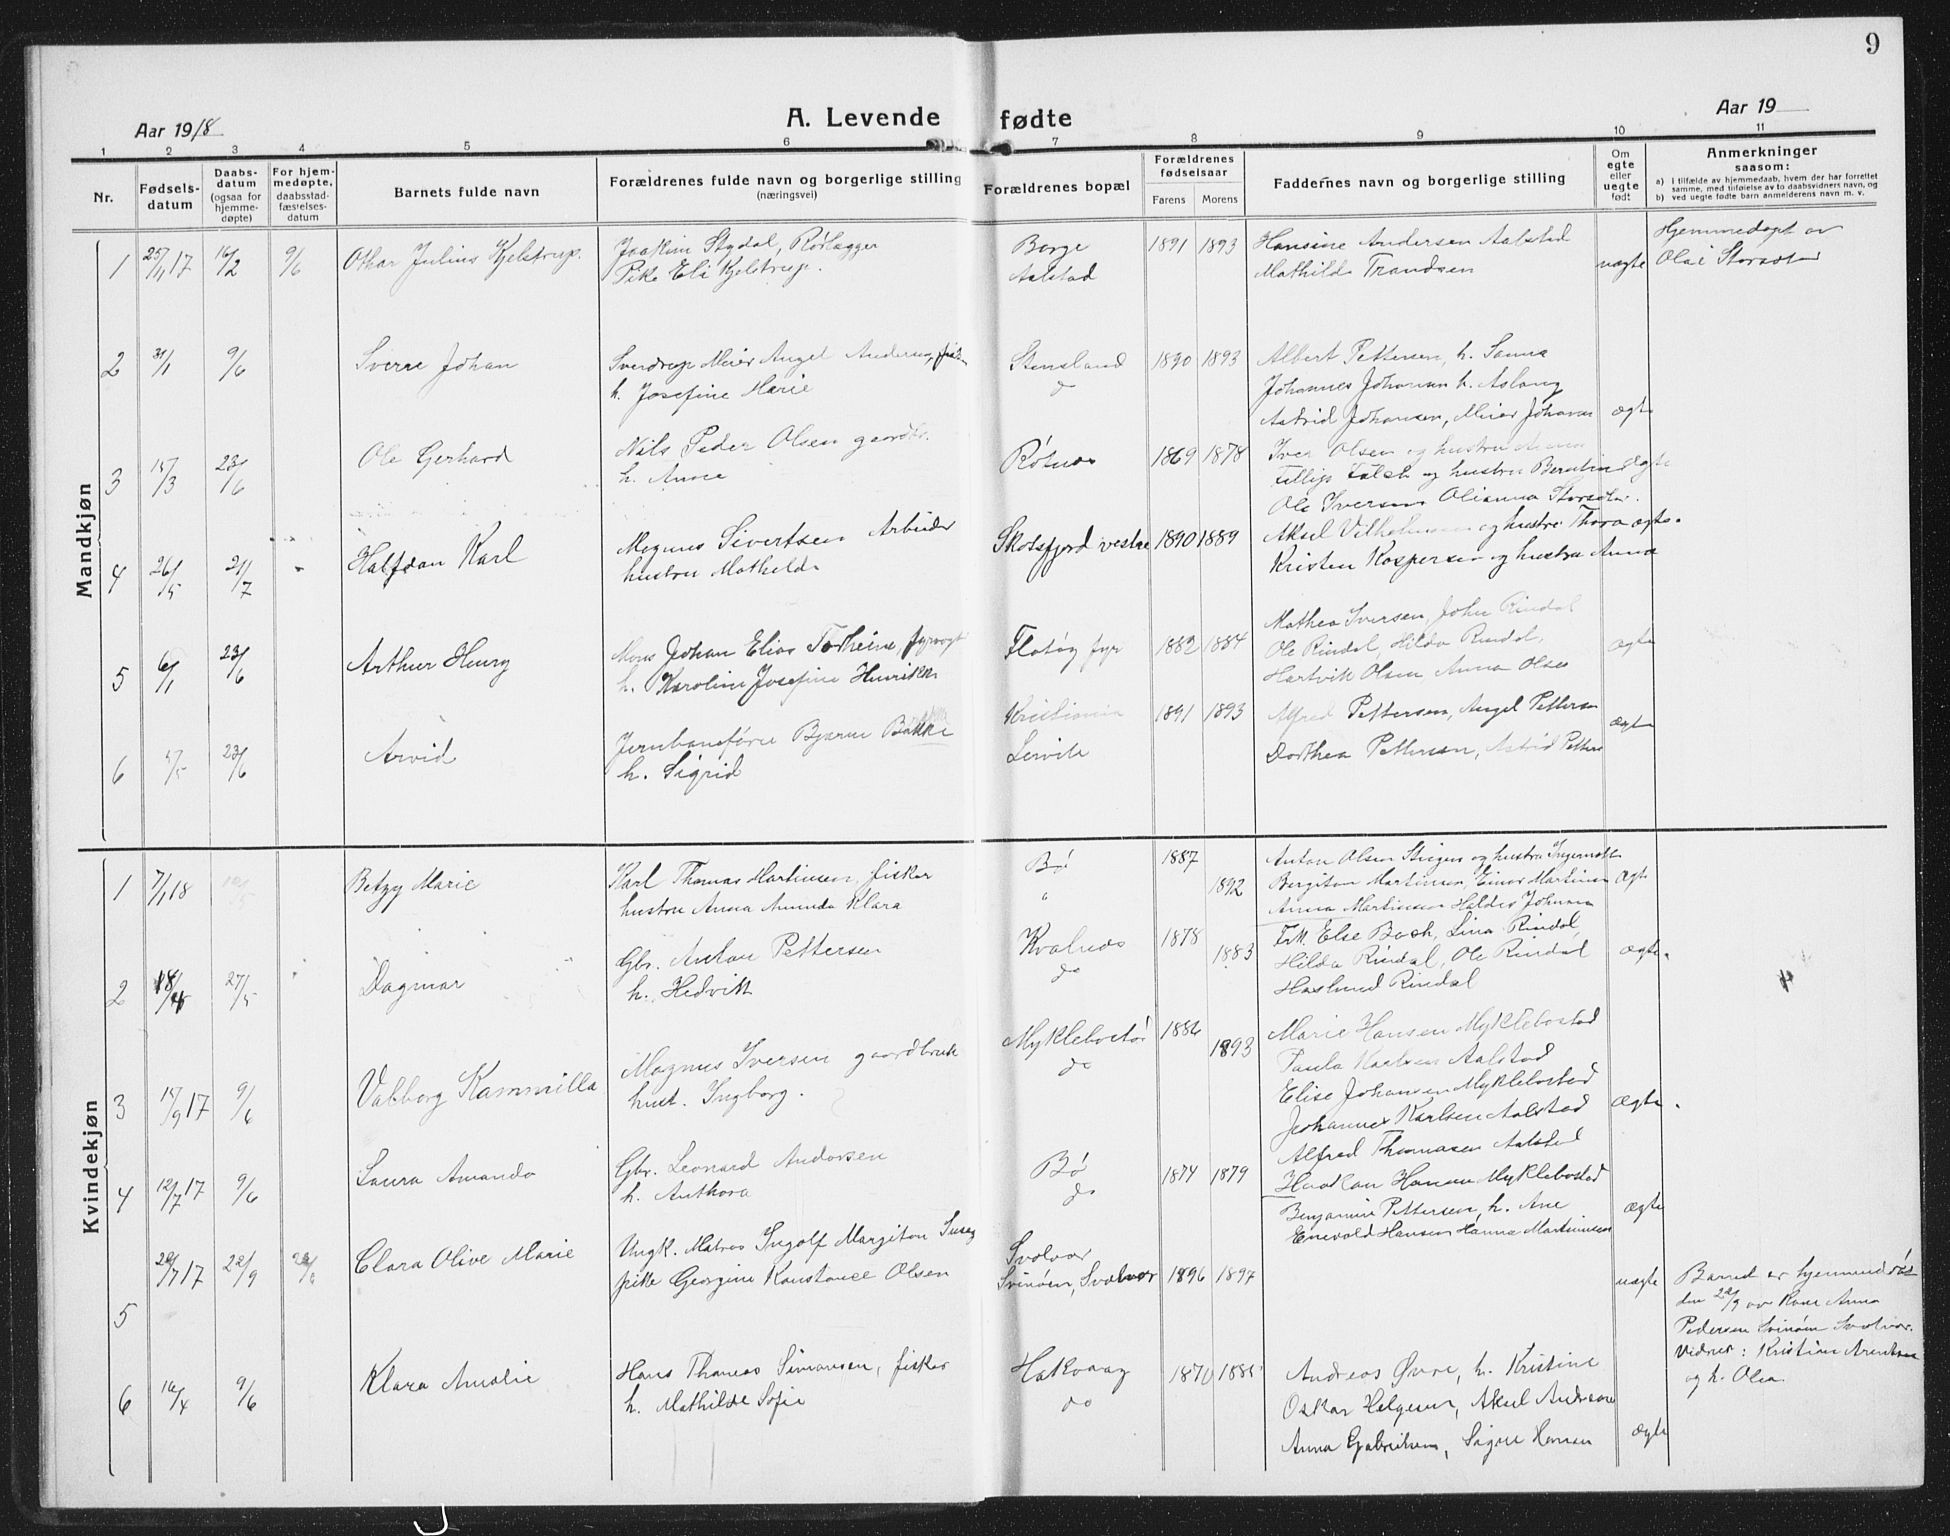 9
Aar 1918
A. Levende fødte
Aar 19
1 2 3 4 5 6 7 8 9 10 11
Nr.
Fødsels-
datum
Daabs-
datum
(ogsaa for
hjemme-
døpte)
For hjem-
medøpte,
daabsstad-
fæstelses-
datum
Barnets fulde navn
Forældrenes fulde navn og borgerlige stilling
(næringsvei)
Forældrenes bopæl
Forældrenes
fødselsaar
Farens Morens
Faddernes navn og borgerlige stilling
Om
egte
eller
uegte
født
Anmerkninger
saasom:
a) I tilfælde av hjemmedaab, hvem der har forrettet
samme, med tilføielse av to daabsvidners navn, og
b) ved uegte fødte barn anmelderens navn m. v.
Mandkjøn
1 25/11 17 16/2 9/6 Othar Julius Kjelstrup. Joakim Stydal, Rørlægger Borge 1891 1893 Hansine Andersen Aalstad Hjemmedøpt av
Pike Eli Kjelstrup. Aalstad Mathilde Trandsen uægte Olai
2 31/1 9/6 Sverre Johan Sverdrup Meier Angel Stensland 1890 1893 Albert Pettersen, h. Sanna
h. Josefine Marie do Johannes Johansen h. Aslaug
Astrid Johansen, Meier Johansen ægte
3 15/3 23/6 Ole Gerhard Nils Peder Olsen gaardbr. Røtnes 1869 1878 Iver Olsen og hustru
h. Anna Falch og hustru ægte
Ole Iversen Olianna
4 26/5 21/7 Halfdan Karl Magnus Sivertsen Arbeider Skotsfjord vestre 1890 1889 Aksel og hustru Thora ægte.
hustru Mathilde Kristen Kaspersen og hustru Anna
Mathea Iversen, John Rindal
5 6/1 23/6 Arthur Henry Mons Johan Elias fyrvogt Flatøy fyr 1882 1884 Ole Rindal, Hilda Rindal, ægte
h. Karoline Josefine Hartvik Olsen Anna Olsen
6 23/6 Arvid Bjarne Bakke Kristiania 1891 1893 Alfred Pettersen, Angel Pettersen ægte
h. Sigrid Dorthea Pettersen, Astrid
Kvindekjøn
1 7/1 18 Betzy Marie Karl Thomas Martinsen, fisker Bø 1887 Anton Olsen og hustru
hustru Anna Aminda Klara " 1892 Bergiton Martinsen, Einar Martinsen ægte
Anna Martinsen
2 18/4 27/5 Dagmar Gbr. Anton Pettersen Kvalnes 1878 Frk. Else Bach, Lina Rindal,
h. Hedvik do 1883 Hilda Rindal, Ole Rindal ægte.
Rindal
3 9/17 9/6 Valborg Kammilla Magnus Iversen gaardbruk Myklebostad 1886 Marie Hansen Myklebostad
hust. Ingborg. do 1893 Paula Karlsen Aalstad
Elise Johansen Myklebostad
Johannes Karlsen Aalstad ægte.
Alfred Thomasen Aalstad
4 12/7 17 9/6 Laura Amanda Gbr. Leonard Andorsen Bø 1874 1879 Haakon Hansen Myklebostad
h. Anthora do Benjamin Pettersen, h. Ane ægte
Enevold Hansen Hanna Martinusen
5 7 17 22/9 Clara Olive Marie Ungk. Matros Ingolf Margiton Svolvær
pike Georgine Konstance Olsen Svinøen, Svolvær 1896 1897 uægte Barnet er hjemmedøpt
den 22/9 av Anna
Pedersen Svinøen Svolvær.
Vidner: Kristian Arentsen
og h. Olea.
6 10/4 9/6 Klara Amalie Hans Thomas Simonsen, fisker Hakvaag 1870 Andreas Øvre, h. Kristine
h. Mathilde Sofie do Oskar Helgesen, Aksel
Anna Gabrielsen, Signe Hansen ægte